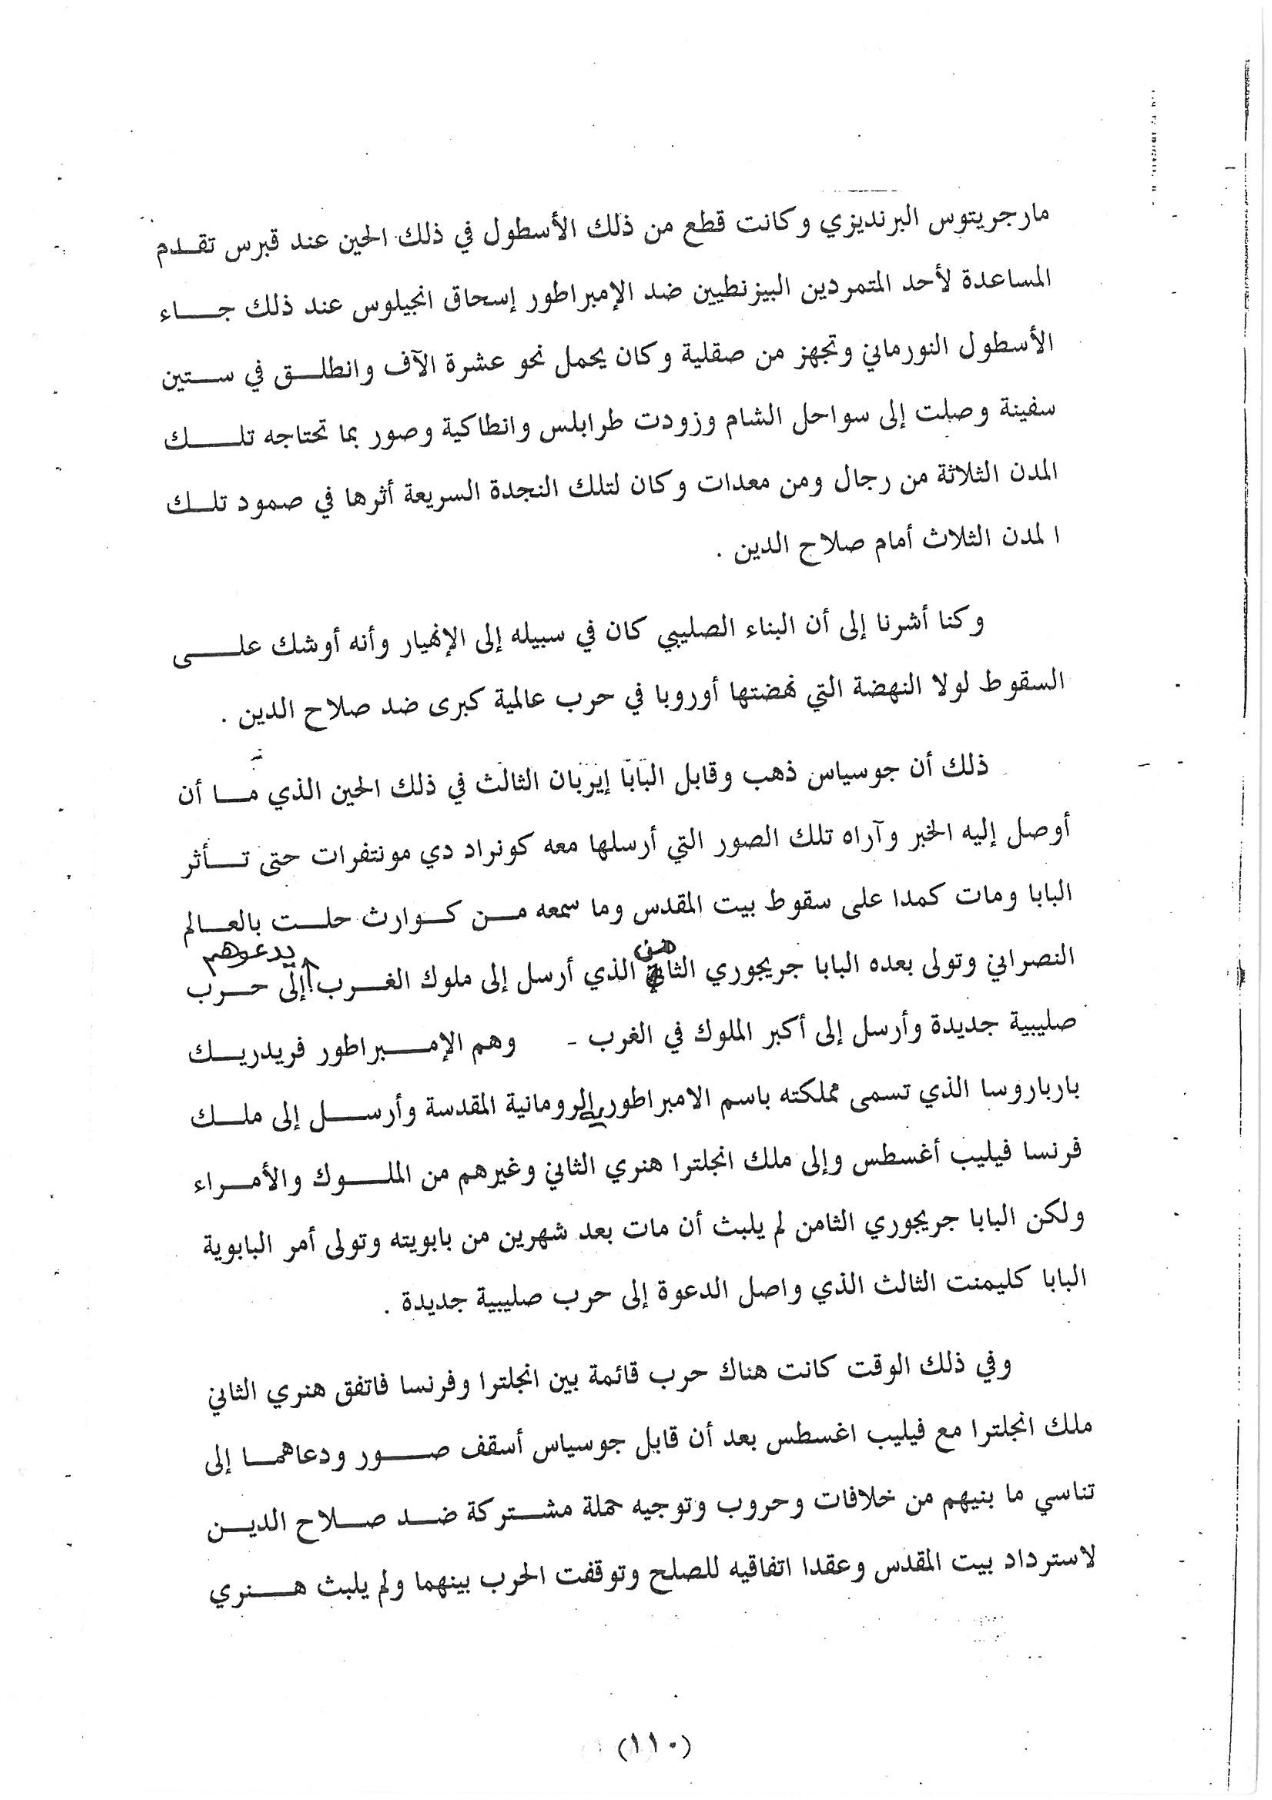 مارجريتوس البرنديزي وكانت قطع من ذلك الأسطول في ذلك الحين عند قبرس تقدم
المساعدة لأحد المتمردين البيزنطيين ضد الإمبراطور إسحاق انجيلوس عند ذلك جاء
الأسطول النورماني وتجهز من صقلية وكان يحمل نحو عشرة الآف وانطلق في ستين
سفينة وصلت إلى سواحل الشام وزودت طرابلس وانطاكية وصور بما تحتاجه تلك
المدن الثلاثة من رجال ومن معدات وكان لتلك النجدة السريعة أثرها في صمود تلك
المدن الثلاث أمام صلاح الدين .
وكنا أشرنا إلى أن البناء الصليبي كان في سبيله إلى الإنهيار وأنه أوشك على
السقوط لولا النهضة التي نهضتها أوروبا في حرب عالمية كبرى ضد صلاح الدين .
ذلك أن جوسياس ذهب وقابل البابا إيربان الثالث في ذلك الحين الذي ما أن
أوصل إليه الخبر وآراه تلك الصور التي أرسلها معه كونراد دي مونتفرات حتى تأثر
البابا ومات كمدا على سقوط بيت المقدس وما سمعه من كوارث حلت بالعالم
النصراني وتولى بعده البابا جريجوري الثامن الذي أرسل إلى ملوك الغرب يدعوهم إلى حرب
صليبية جديدة وأرسل إلى أكبر الملوك في الغرب - وهم الإمبراطور فريدريك
بارباروسا الذي تسمى مملكته باسم الامبراطورية الرومانية المقدسة وأرسل إلى ملك
فرنسا فيليب أغسطس وإلى ملك انجلترا هنري الثاني وغيرهم من الملوك والأمراء
ولكن البابا جريجوري الثامن لم يلبث أن مات بعد شهرين من بابويته وتولى أمر البابوية
البابا كليمنت الثالث الذي واصل الدعوة إلى حرب صليبية جديدة .
وفي ذلك الوقت كانت هناك حرب قائمة بين انجلترا وفرنسا فاتفق هنري الثاني
ملك انجلترا مع فيليب اغسطس بعد أن قابل جوسياس أسقف صور ودعاهما إلى
تناسي ما بنيهم من خلافات وحروب وتوجيه حملة مشتركة ضد صلاح الدين
لاسترداد بيت المقدس وعقدا اتفاقيه للصلح وتوقفت الحرب بينهما ولم يلبث هنري
(١١٠)